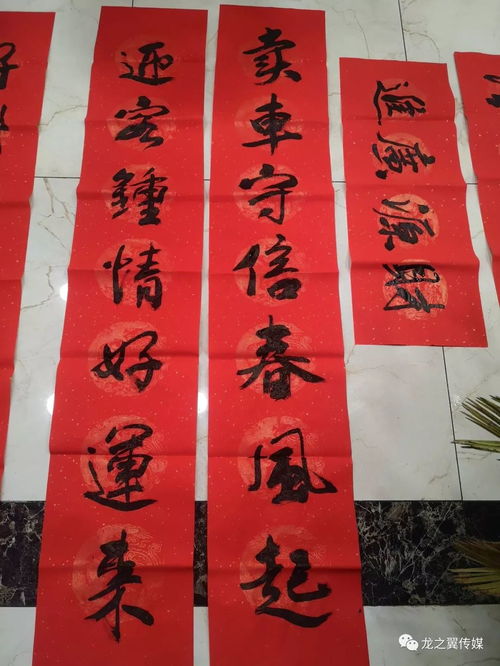 財源廣進
卖車守信春風起
迎客鍾情好運来
龙之翼传媒